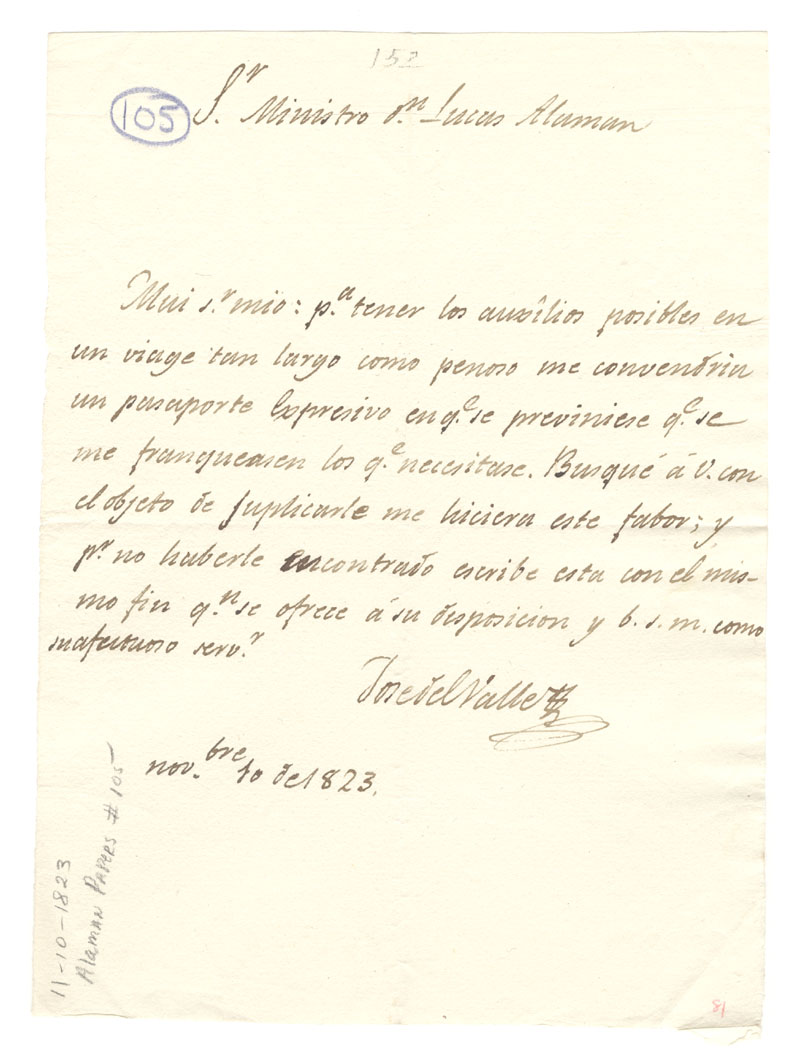 152
105
S.r Ministro d.n Lucas Alaman
Mui s.r mio: p.a tener los auxîlios posibles en
un viage tan largo como penoso me convendria
un pasaporte Expresivo en q.e se previniese q.e se
me franqueasen los q.e necesitase. Busqué á V. con
el objeto de suplicarle me hiciera este fabor; y
p.r no haberle encontrado escribe esta con el mis-
mo fin q.n se ofrece á su disposicion y b. s. m. como
su afectuoso serv.r
Jose del Valle
nov.bre 10 de 1823.
11-10-1823
Alaman Papers #105
81